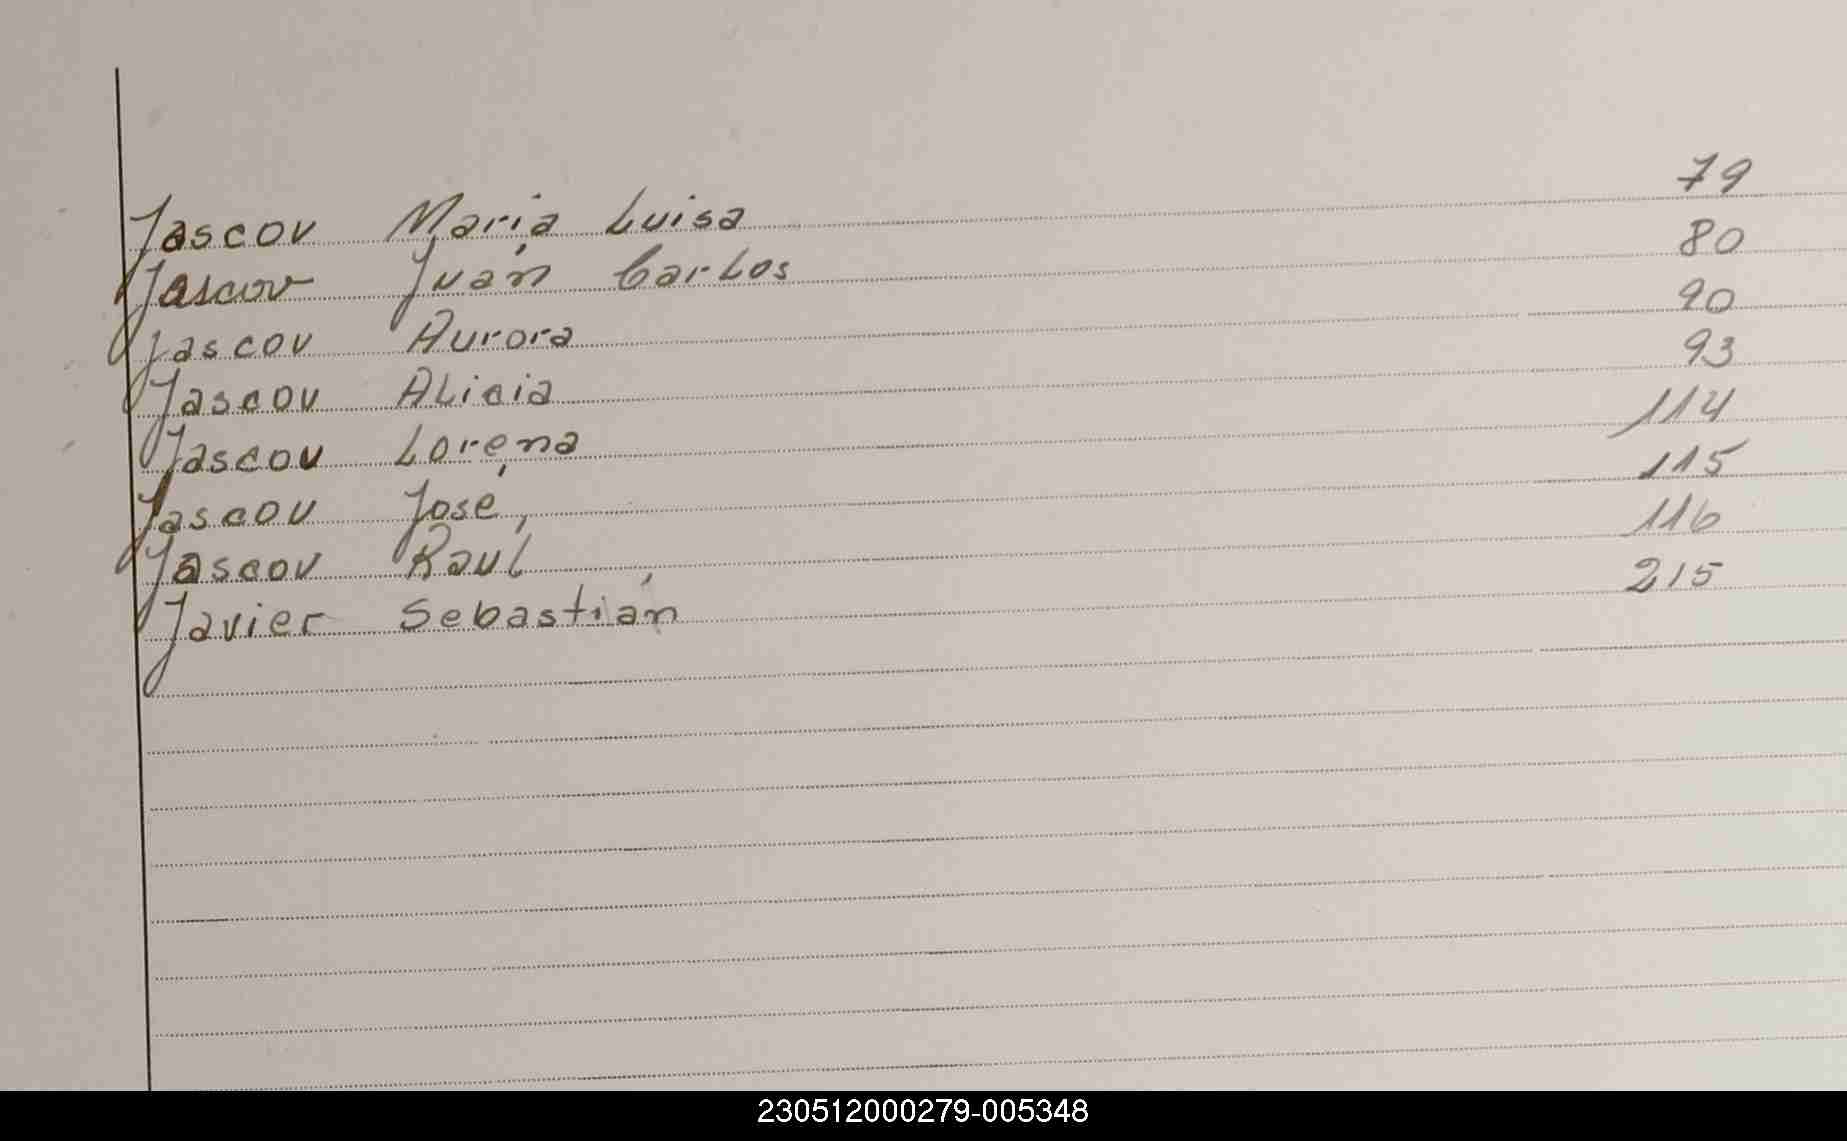 Jascov Maria Luisa 79
Jascov Juan Carlos 80
Jascov Aurora 90
Jascov Alicia 93
Jascov Lorena 114
Jascov José, 115
Jascov Raul 116
Javier Sebastián 215
230512000279-005348